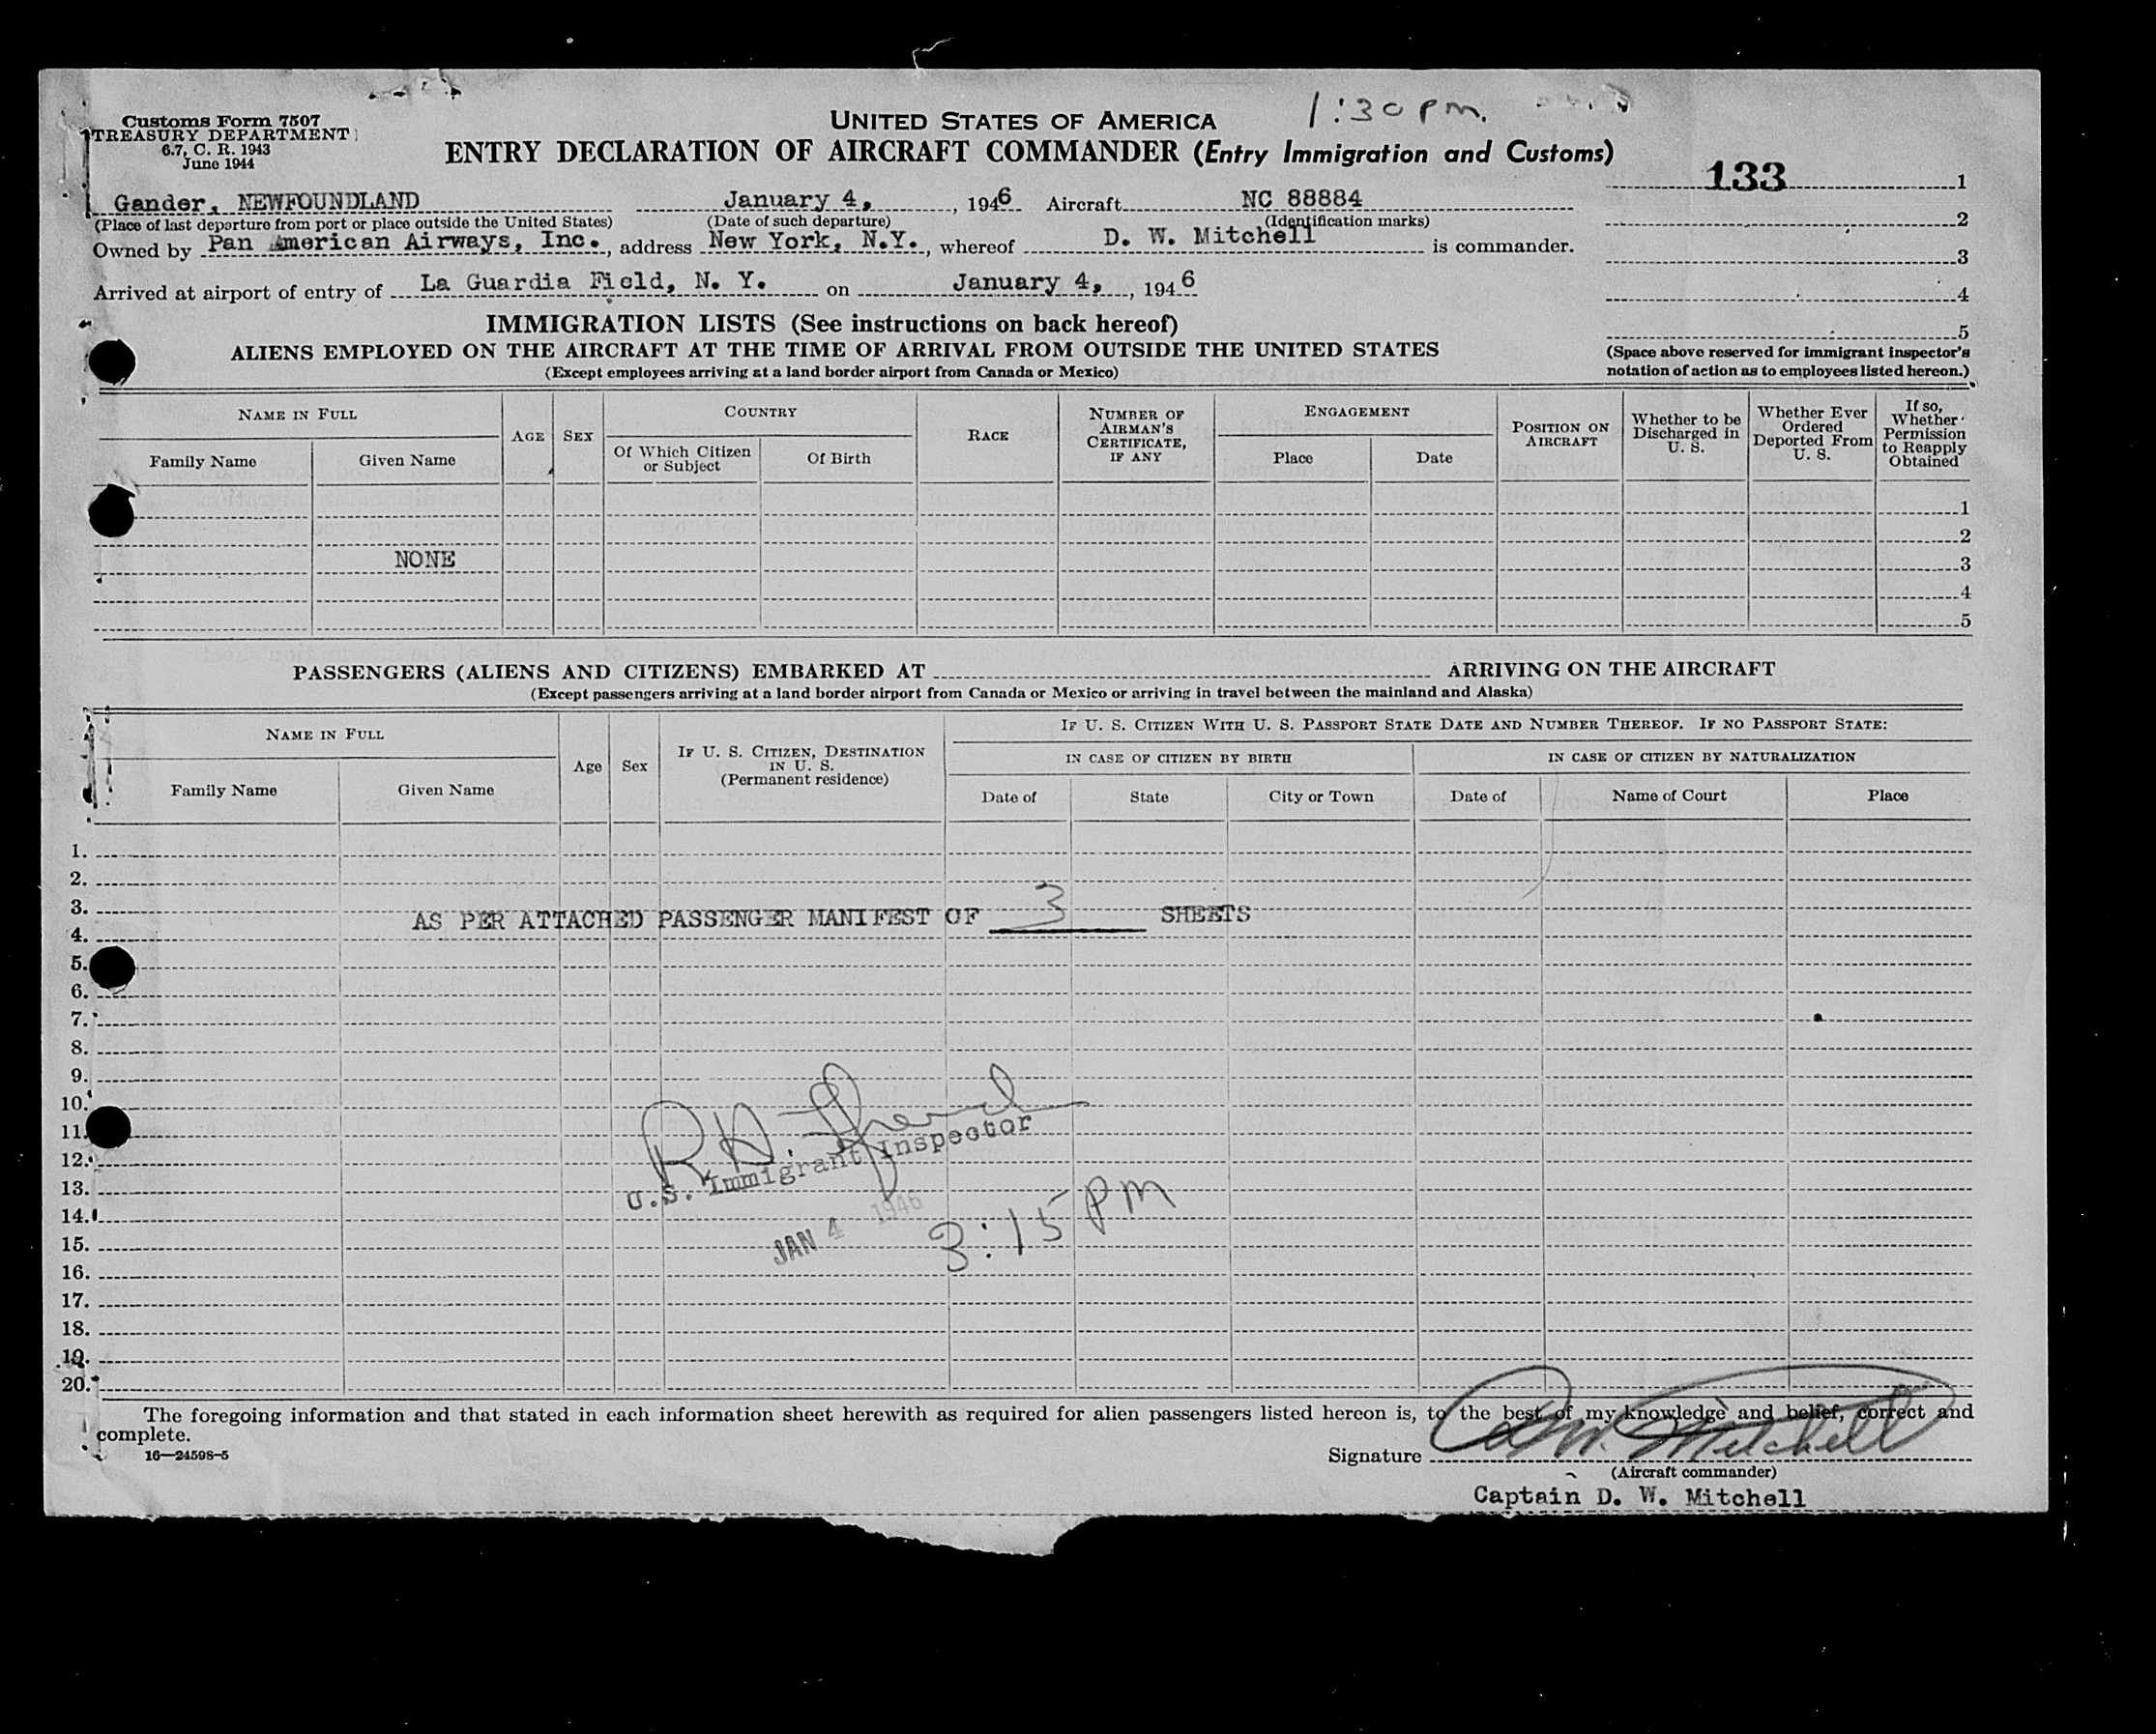 Customs Form 7507
TREASURY DEPARTMENT
6.7, C. R. 1943
June 1944
UNITED STATES OF AMERICA
1:30 pm.
ENTRY DECLARATION OF AIRCRAFT COMMANDER (Entry Immigration and Customs)
133 1
Gander, NEWFOUNDLAND January 4, , 1946 Aircraft NC 88884
(Place of last departure from port or place outside the United States) (Date of such departure) (Identification marks)
2
Owned by Pan American Airways, Inc. , address New York, N.Y. , whereof D. W. Mitchell is commander.
3
Arrived at airport of entry of La Guardia Field, N. Y. on January 4, , 1946
4
IMMIGRATION LISTS (See instructions on back hereof)
5
ALIENS EMPLOYED ON THE AIRCRAFT AT THE TIME OF ARRIVAL FROM OUTSIDE THE UNITED STATES
(Except employees arriving at a land border airport from Canada or Mexico)
(Space above reserved for immigrant inspector's
notation of action as to employees listed hereon.)
NAME IN FULL
Family Name Given Name
AGE SEX
COUNTRY
Of Which Citizen
or Subject
Of Birth
RACE
NUMBER OF
AIRMAN'S
CERTIFICATE,
IF ANY
ENGAGEMENT
Place Date
POSITION ON
AIRCRAFT
Whether to be
Discharged in
U. S.
Whether Ever
Ordered
Deported From
U. S.
If so,
Whether
Permission
to Reapply
Obtained
1
2
NONE 3
4
5
PASSENGERS (ALIENS AND CITIZENS) EMBARKED AT ARRIVING ON THE AIRCRAFT
(Except passengers arriving at a land border airport from Canada or Mexico or arriving in travel between the mainland and Alaska)
NAME IN FULL
Family Name Given Name
Age Sex
IF U. S. CITIZEN, DESTINATION
IN U. S.
(Permanent residence)
IF U. S. CITIZEN WITH U. S. PASSPORT STATE DATE AND NUMBER THEREOF. IF NO PASSPORT STATE:
IN CASE OF CITIZEN BY BIRTH IN CASE OF CITIZEN BY NATURALIZATION
Date of State City or Town Date of Name of Court Place
1.
2.
3.
AS PER ATTACHED PASSENGER MANIFEST OF 3 SHEETS
4.
5.
6.
7.
8.
9.
10.
11.
12.
13.
14.
15.
16.
17.
18.
19.
20.
R. H.
U.S. Immigrant Inspector
JAN 4 1946
3:15 pm
The foregoing information and that stated in each information sheet herewith as required for alien passengers listed hereon is, to the best of my knowledge and belief, correct and
complete.
16—24598-5
Signature D. W. Mitchell
(Aircraft commander)
Captain D. W. Mitchell